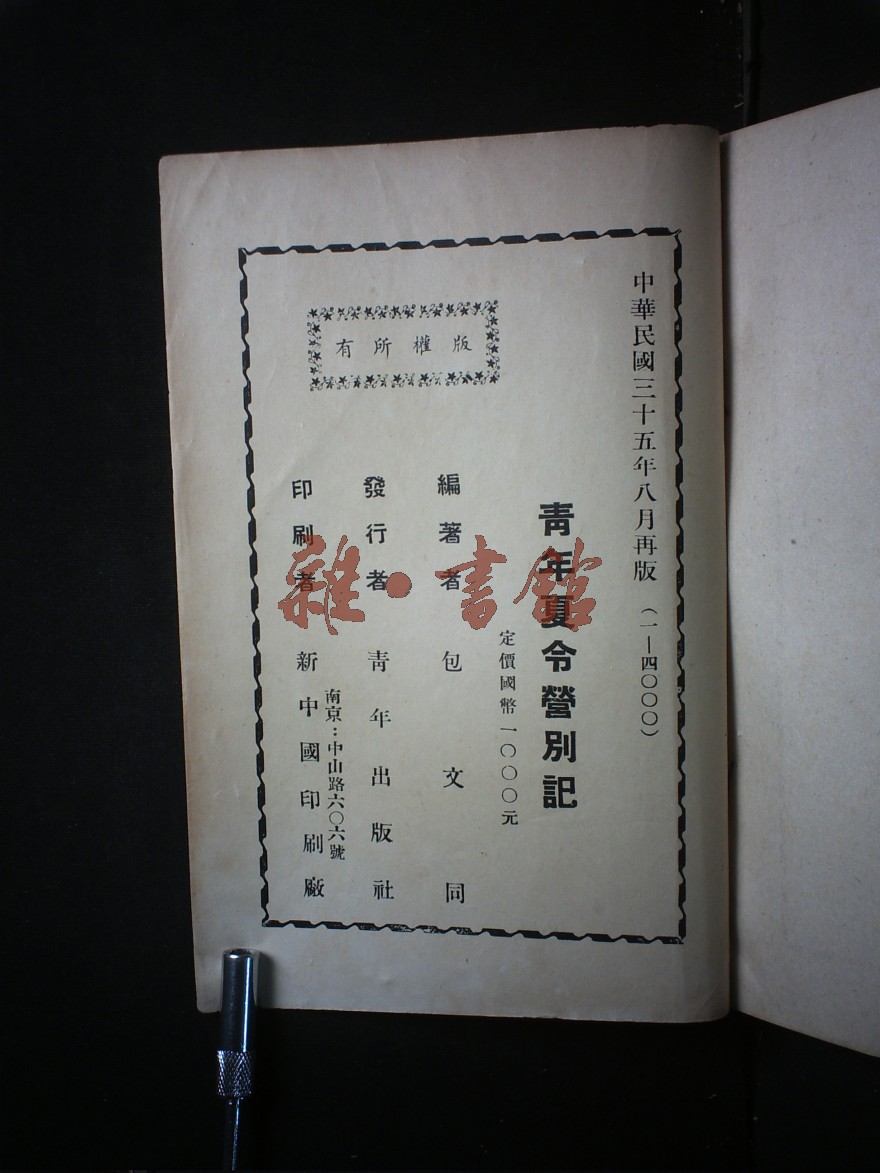 中華民國三十五年八月再版（一—四〇〇〇）
青年夏令營別記
定價國幣一〇〇〇元
編著者 包文同
發行者 青年出版社
南京：中山路六〇六號
印刷者 新中國印刷廠
版權所有
雜·書館